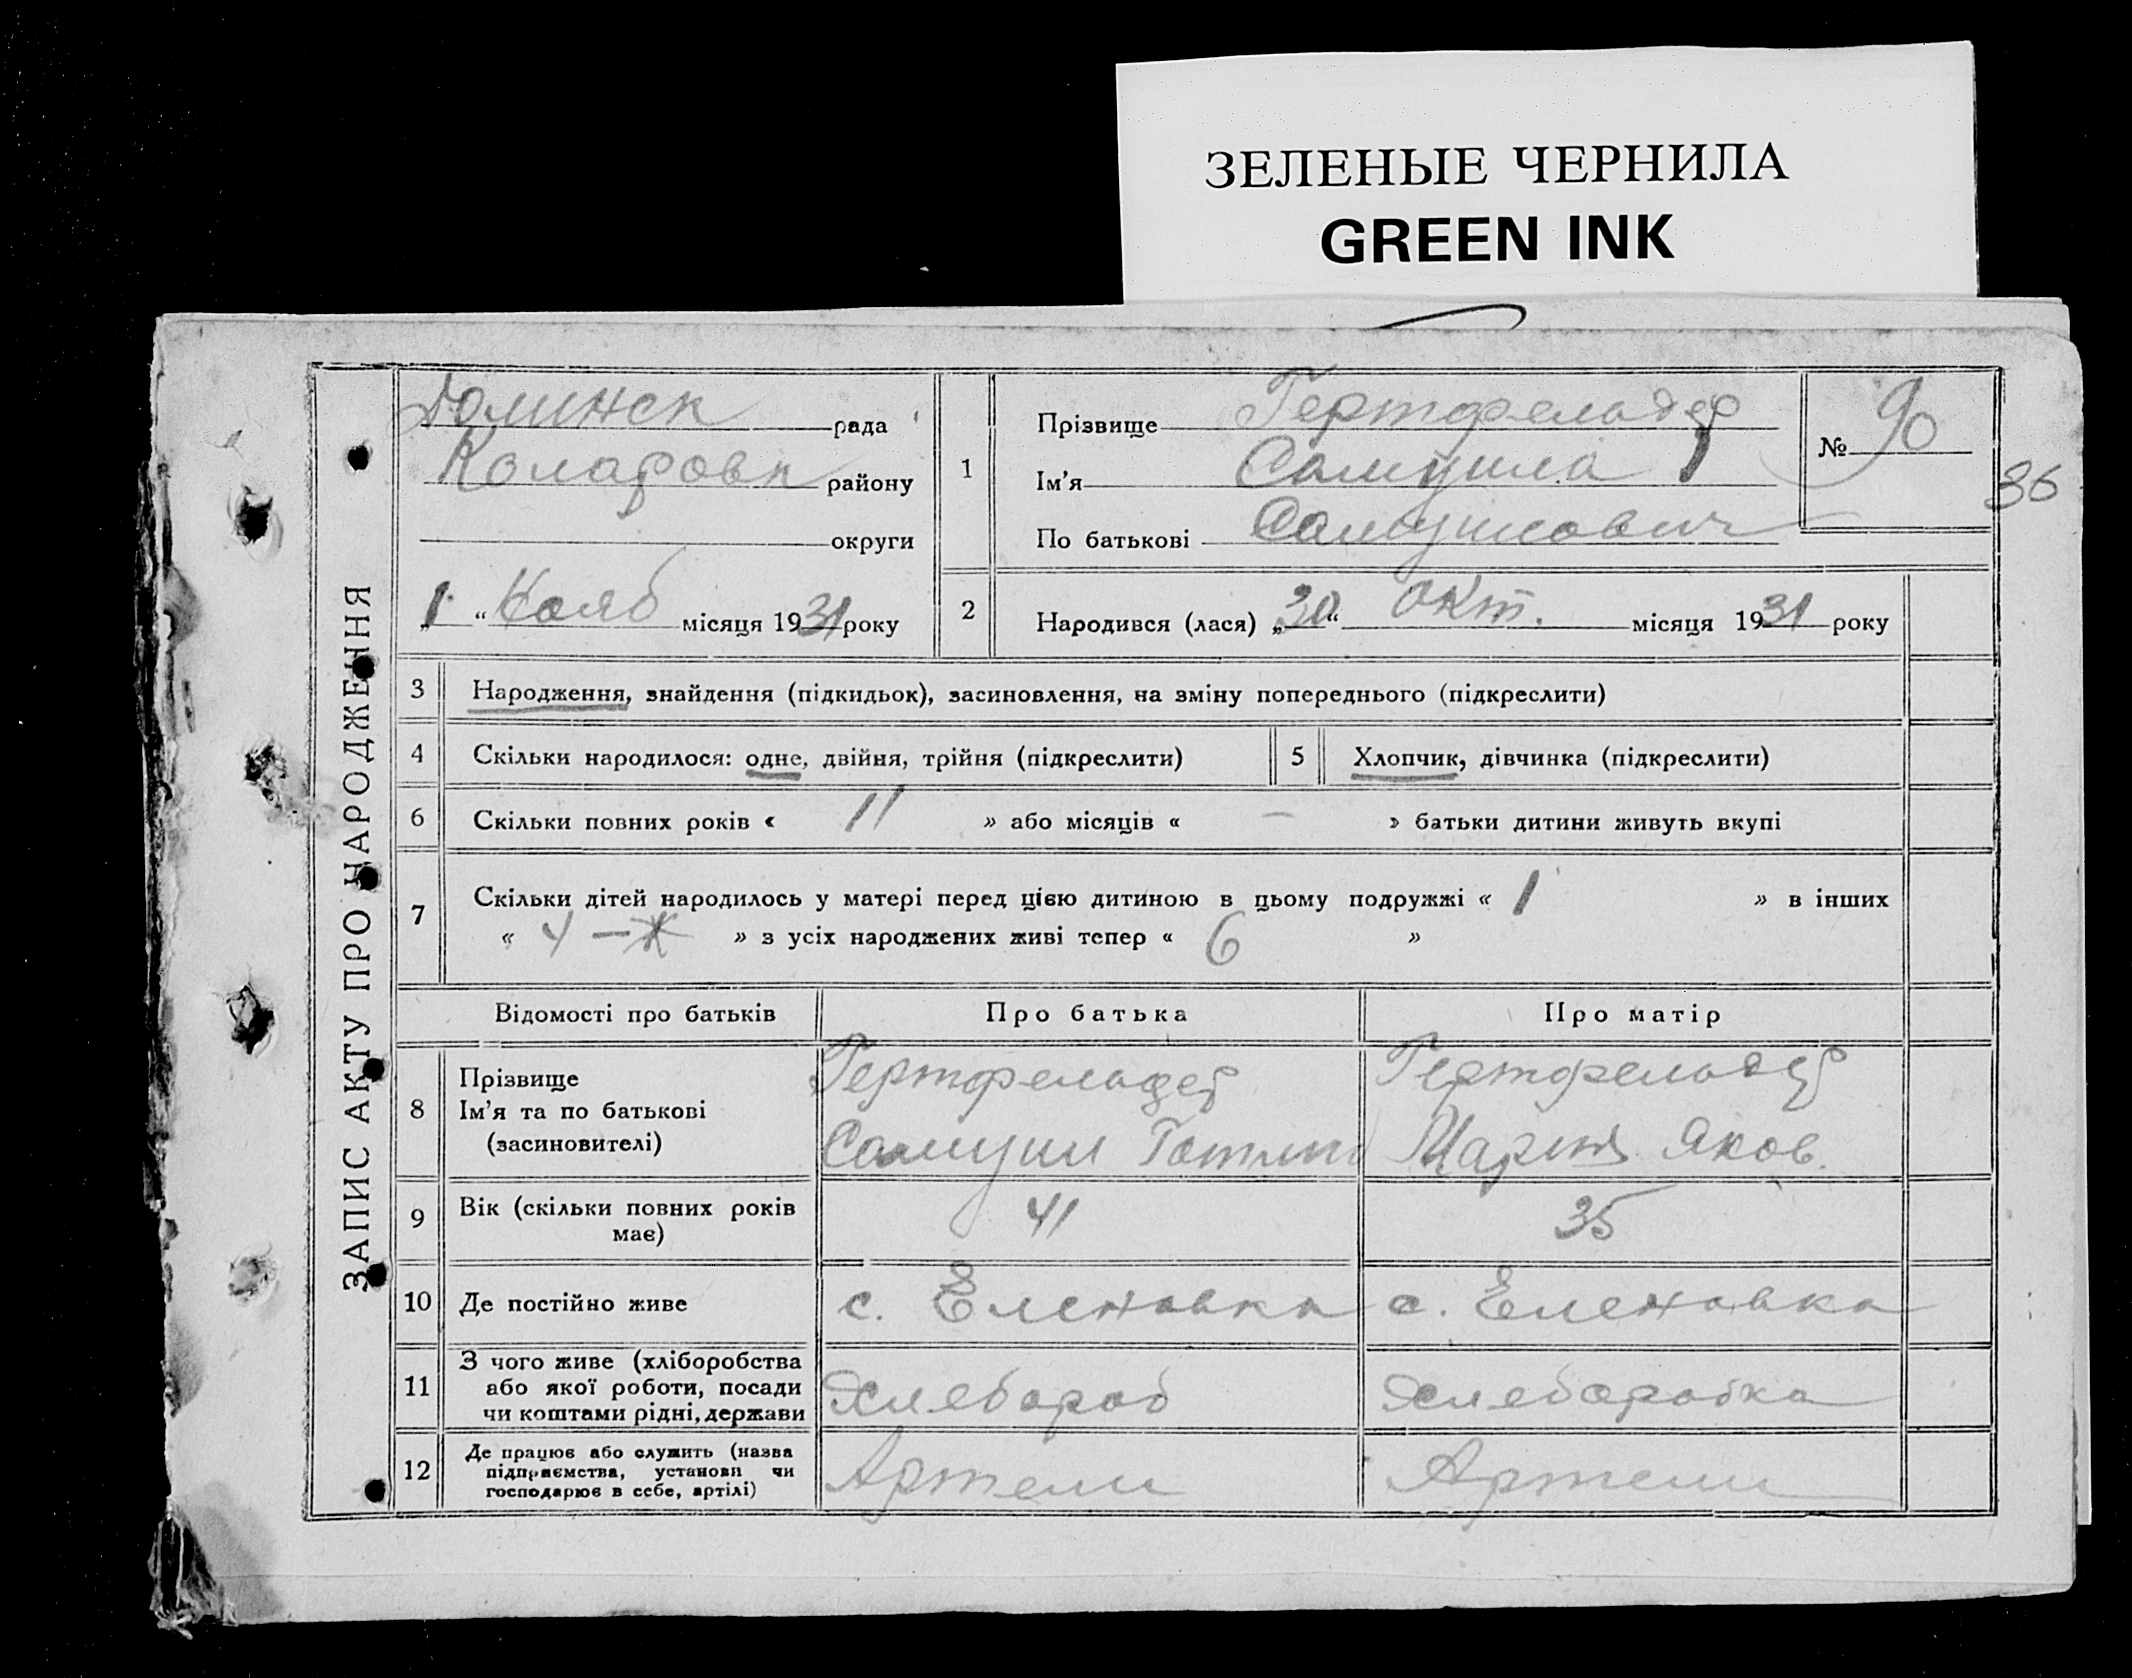 ЗЕЛЕНЫЕ ЧЕРНИЛА
GREEN INK
ЗАПИС АКТУ ПРО НАРОДЖЕННЯ
Долинск рада
Коларовк району
округи
„1“ Нояб місяця 1931 року
1
Прізвище Гертфельдер
Ім'я Самуила
По батькові Самуилович
№ 90
86
2 Народився (лася) „30“ Окт. місяця 1931 року
3 Народження, знайдення (підкидьок), засиновлення, на зміну попереднього (підкреслити)
4 Скільки народилося: одне, двійня, трійня (підкреслити)
5 Хлопчик, дівчинка (підкреслити)
6 Скільки повних років « 11 » або місяців « — » батьки дитини живуть вкупі
7 Скільки дітей народилось у матері перед цією дитиною в цьому подружжі « 1 » в інших
« 4 — » з усіх народжених живі тепер « 6 »
Відомості про батьків Про батька Про матір
8 Прізвище
Ім'я та по батькові
(засиновителі)
Гертфельдер
Самуил
Гертфельдер
Мария Яков.
9 Вік (скільки повних років
має)
41
35
10 Де постійно живе с. Еленовка с. Еленовка
11 З чого живе (хліборобства
або якої роботи, посади
чи коштами рідні, держави
Хлебороб
Хлеборобка
12 Де працює або служить (назва
підприємства, установи чи
господарює в себе, артілі)
Артели
Артели